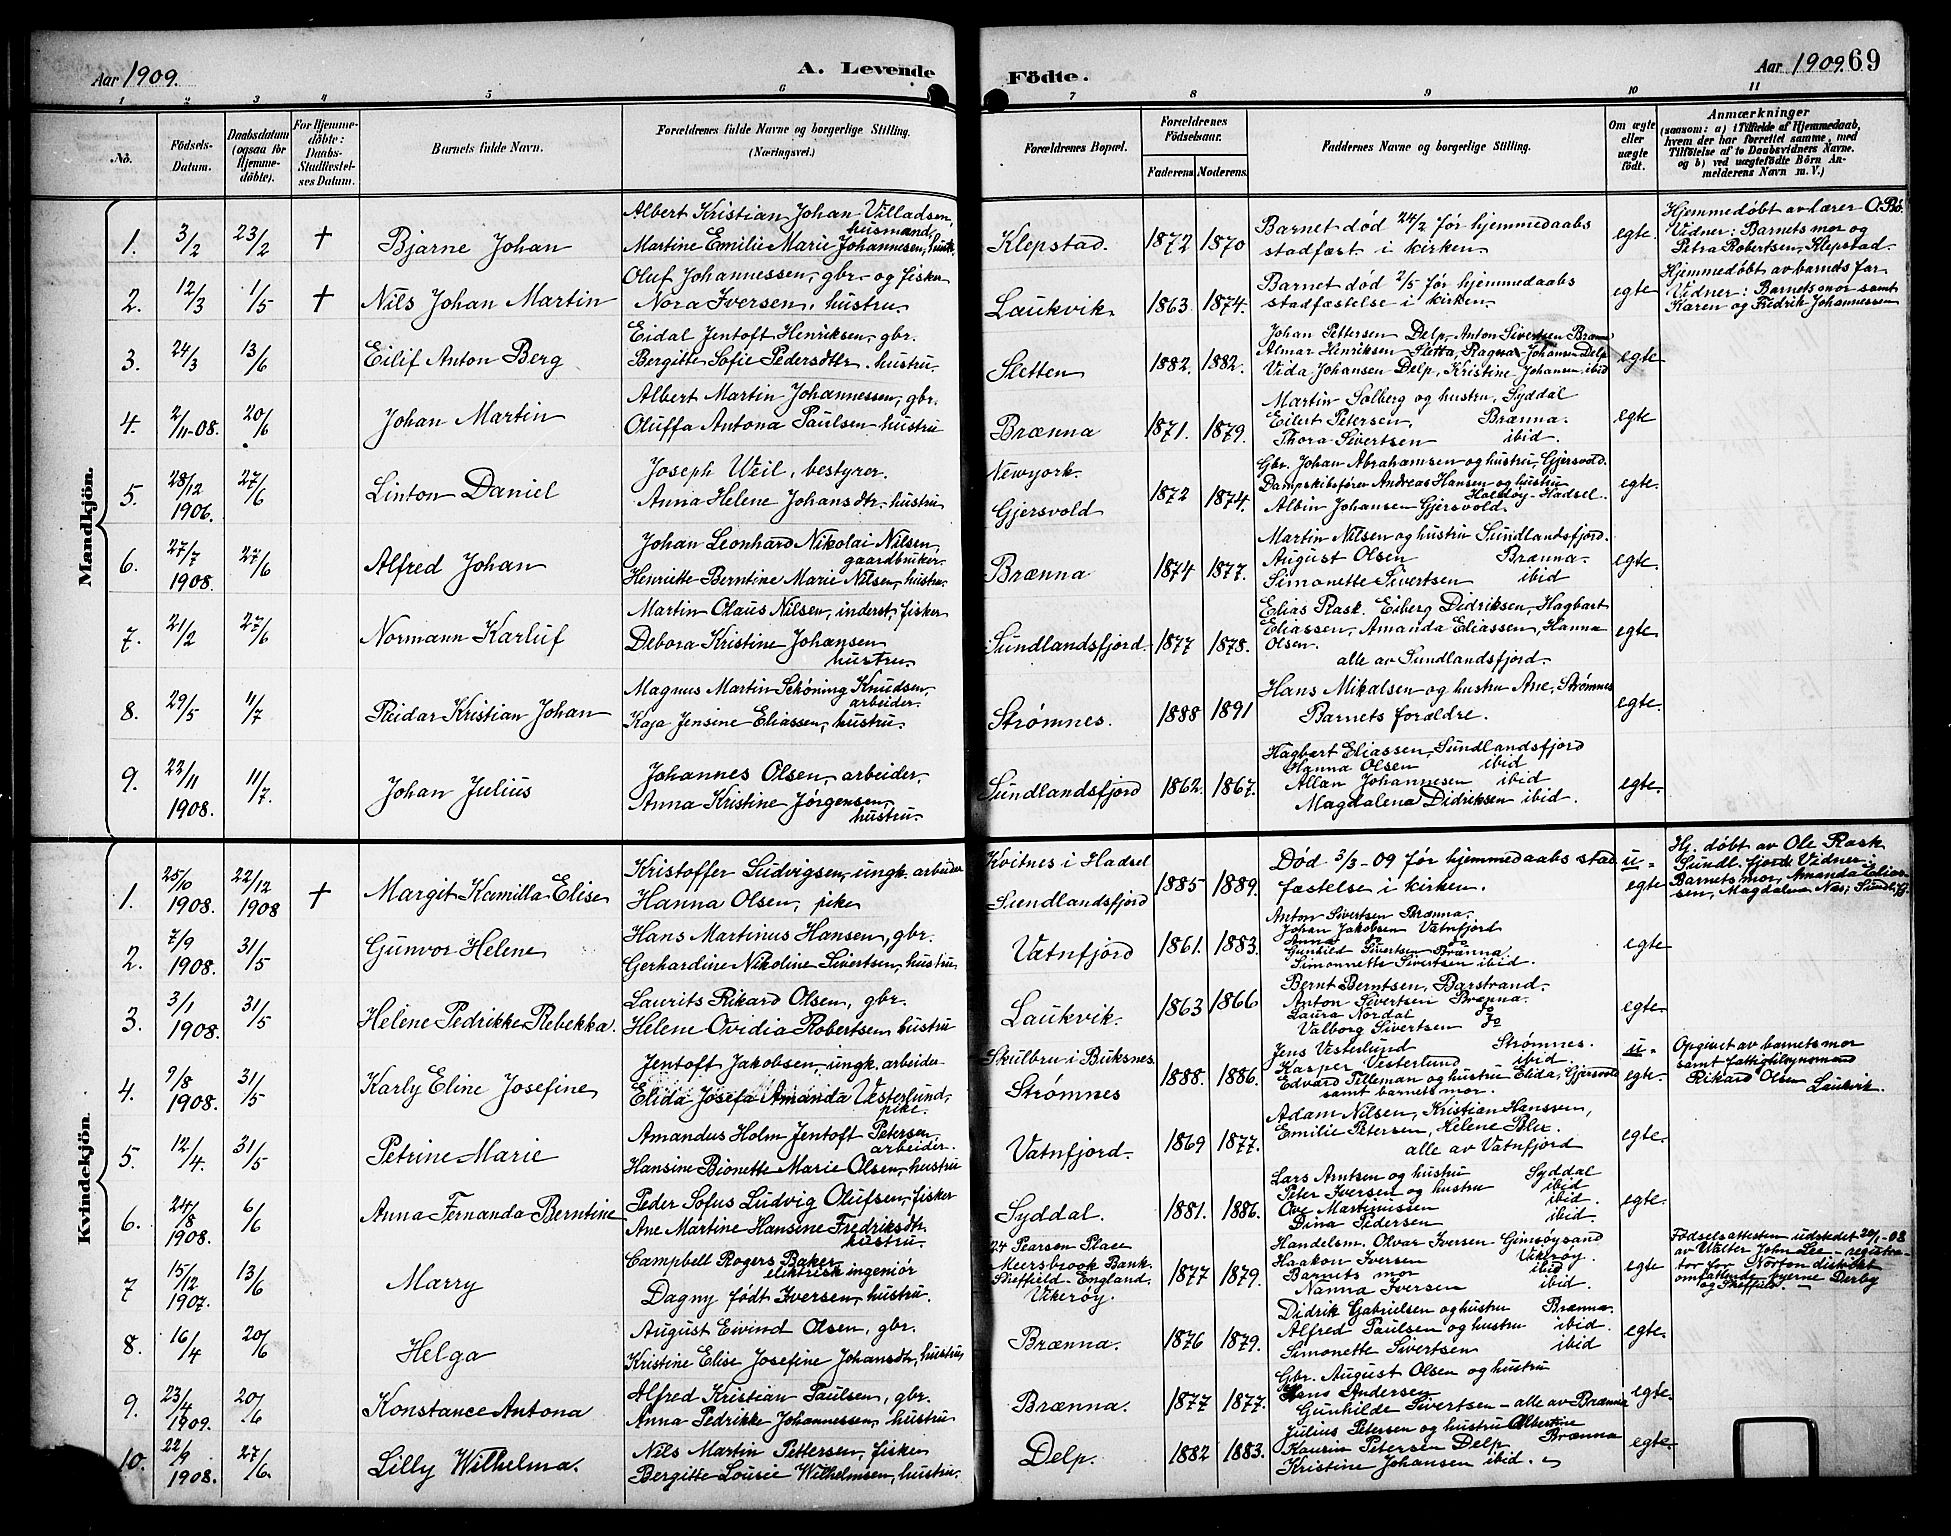 Aar 1909.
A. Levende
Födte.
Aar 1909. 69
1 2 3 4 5 6 7 8 9 10 11
No.
Födsels-
Datum.
Daabsdatum
(ogsaa for
Hjemme-
döbte).
For Hjemme-
döbte:
Daabs-
Stadfæstel-
ses Datum.
Barnets fulde Navn.
Forældrenes fulde Navne og borgerlige Stilling.
(Næringsvei.)
Forældrenes Bopæl.
Forældrenes
Födselsaar.
Faderens. Moderens.
Faddernes Navne og borgerlige Stilling.
Om ægte
eller
uægte
födt.
Anmærkninger
(saasom: a) i Tilfælde af Hjemmedaab,
hvem der har forrettet samme, med
Tilföielse af to Daabsvidners Navne.
og b) ved uægtefödte Börn An-
melderens Navn m. V.)
Mandkjön.
1. 3/2 23/2 † Bjarne Johan
Albert Kristian Johan Villadsen,
husmand,
Martine Emilie Marie Johannesen, hustr.
Klepstad. 1872 1870
Barnet död 24/2 før hjemmedaabs
stadfæst. i kirken.
egte.
Hjemmedøbt av lærer O. Bö.
Vidner: Barnets mor og
Petra Robertsen, Klepstad.
2. 12/3 1/5 † Nils Johan Martin
Oluf Johannessen, gbr. og fisker
Nora Iversen, hustru.
Laukvik. 1863. 1874.
Barnet död 2/5 før hjemmedaabs
stadfæstelse i kirken.
egte
Hjemmedøbt av barnets far
Vidner: Barnets mor samt
Karen og Fredrik Johannessen
3. 24/3 13/6 Eilif Anton Berg
Eidal Jentoft Henriksen, gbr.
Bergitte Sofie Pedersdtr. hustru.
Sletten 1882. 1882.
Johan Pettersen Delp, Anton Sivertsen Brænna
Almar Henriksen Sletta, Ragna Johansen Delp
Vida Johansen Delp, Kristine Johansen, ibid
egte
4. 2/11-08. 20/6 Johan Martin
Albert Martin Johannessen, gbr.
Oluffa Antona Paulsen hustru
Brænna 1871. 1879.
Martin Solberg og hustru, Syddal
Eilert Petersen, Brænna.
Thora Sivertsen ibid.
egte
5. 28/12 1906. 27/6 Linton Daniel
Joseph Weil, bestyrer.
Anna Helene Johansdtr. hustru
Newyork.
Gjersvold 1872 1874.
Gbr. Johan Abrahamsen og hustru, Gjersvold.
Dampskibsfører Andreas Hansen og hustru
Holdöy-Hadsel.
Albin Johansen Gjersvold.
egte.
6. 27/7 1908. 27/6 Alfred Johan
Johan Leonhard Nikolai Nilsen,
gaardbruker.
Henriette Berntine Marie Nilsen, hustru
Brænna 1874 1877.
Martin Nilsen og hustru Sundlandsfjord.
August Olsen Brænna.
Simonette Sivertsen ibid
egte.
7. 21/2 27/6 Normann Karluf
Martin Olaus Nilsen, inderst, fisker
Debora Kristine Johansen
hustru.
Sundlandsfjord. 1877 1878.
Elias Rask. Eiberg Didriksen, Hagbart
Eliassen, Amanda Eliassen, Hanna
Olsen.
alle av Sundlandsfjord.
egte.
8. 29/5 11/7 Reidar Kristian Johan
Magnus Martin Schöning Knudsen,
arbeider.
Kaja Jensine Eliassen, hustru.
Strømnes. 1888 1891
Hans Mikalsen og hustru Ane, Strømnes
Barnets forældre.
egte.
9. 22/11 1908. 11/7. Johan Julius
Johannes Olsen, arbeider,
Anna Kristine Jörgensen,
hustru.
Sundlandsfjord 1862. 1867.
Hagbart Eliassen, Sundlandsfjord
Hanna Olsen ibid
Allan Johannesen ibid
Magdalena Didriksen ibid.
egte.
Kvindekjön
1. 25/10 1908. 22/12 1908 † Margit Kamilla Elise
Kristoffer Ludvigsen, ungk. arbeider
Hanna Olsen, pike
Kvitnes i Hadsel
Sundlandsfjord 1885 1889.
Död 3/3-09 før hjemmedaabs stad
fæstelse i kirken.
u-
egte
Hj. döbt av Ole Rask
Sundl. fjord. Vidner:
Barnets mor, Amanda Elias-
sen, Magdalena Næs, Sundl. fj.
2. 7/9 1908. 31/5 Gunvor Helene
Hans Martinus Hansen, gbr.
Gerhardine Nikoline Sivertsen, hustru
Vatnfjord 1861. 1883.
Anton Sivertsen Brænna.
Johan Jakobsen Vatnfjord
Anna do do
Gunhild Sivertsen Brænna.
Simonnette Sivertsen ibid.
egte
3. 3/1 1908. 31/5 Helene Pedrikke Rebekka.
Laurits Rikard Olsen, gbr.
Helene Ovidia Robertsen, hustru
Laukvik. 1863 1866
Bernt Berntsen, Barstrand.
Anton Sivertsen Brænna.
Laura Nordal do
Valborg Sivertsen do
egte.
4. 9/8 1908. 31/5 Karly Eline Josefine
Jentoft Jakobsen, ungk. arbeider
Elida Josefa Amanda Vesterlund,
pike.
Skulbru i Buksnes.
Strømnes 1888. 1886.
Jens Vesterlund Strømnes.
Kasper Vesterlund ibid.
Edvard Tilleman og hustru Elida, Gjersvold
samt barnets mor.
u-
egte.
Opgivet av barnets mor
samt fattigtilsynsmand
Rikard Olsen
Laukvik.
5. 12/4. 31/5 Petrine Marie
Amandus Holm Jentoft Petersen,
arbeider.
Hansine Bionette Marie Olsen, hustru
Vatnfjord. 1869 1877.
Adam Nilsen, Kristian Hanssen,
Emilie Petersen, Helene
alle av Vatnfjord
egte.
6. 24/8 1908. 6/6 Anna Fernanda Berntine
Peder Sofus Ludvig Olufsen, fisker
Ane Martine Hansine Fredriksdtr.
hustru.
Syddal. 1881. 1886.
Lars Arntsen og hustru Syddal
Peter Iversen og hustru ibid
Ove Martinissen ibid.
Dina Pedersen ibid.
egte.
7 15/12 1907. 13/6 Marry
Campbell Rogers Baker,
elektrisk ingeniör
Dagny født Iversen, hustru.
24 Pearson Place
Meersbrook Bank.
Sheffield - England.
Vikerøy. 1877 1879.
Handelsm. Olvar Iversen Gimsöysand
Haakon Iversen Vikeröy
Barnets mor ibid
Nanna Iversen ibid.
egte
Fødselsattesten utdstedet 20/1-08
av Walter John Lee - registra-
tor for Norton distrikt
omfattende byerne Derby
og Sheffield.
8. 16/4 20/6 Helga
August Eivind Olsen, gbr.
Kristine Elise Josefine Johansdtr, hustru,
Brænna. 1876 1879.
Didrik Gabrielsen og hustru Brænna.
Alfred Paulsen og hustru ibid.
Simonette Sivertsen ibid
egte.
9. 23/4 1909. 20/6 Konstance Antona
Alfred Kristian Paulsen, gbr.
Anna Pedrikke Johannessen, hustru
Brænna. 1877 1877.
Gbr. August Olsen og hustru
Hans Andersen
Gunhilde Sivertsen - alle av Brænna
egte.
10. 22/9 1908. 27/6. Lilly Wilhelma.
Nils Martin Pettersen, fisker
Bergitte Lousie Wilhelmsen, hustru.
Delp. 1882 1883.
Julius Petersen og hustru Albertine
Brænna
Kaurin Petersen Delp
Kristine Johansen ibid.
egte.